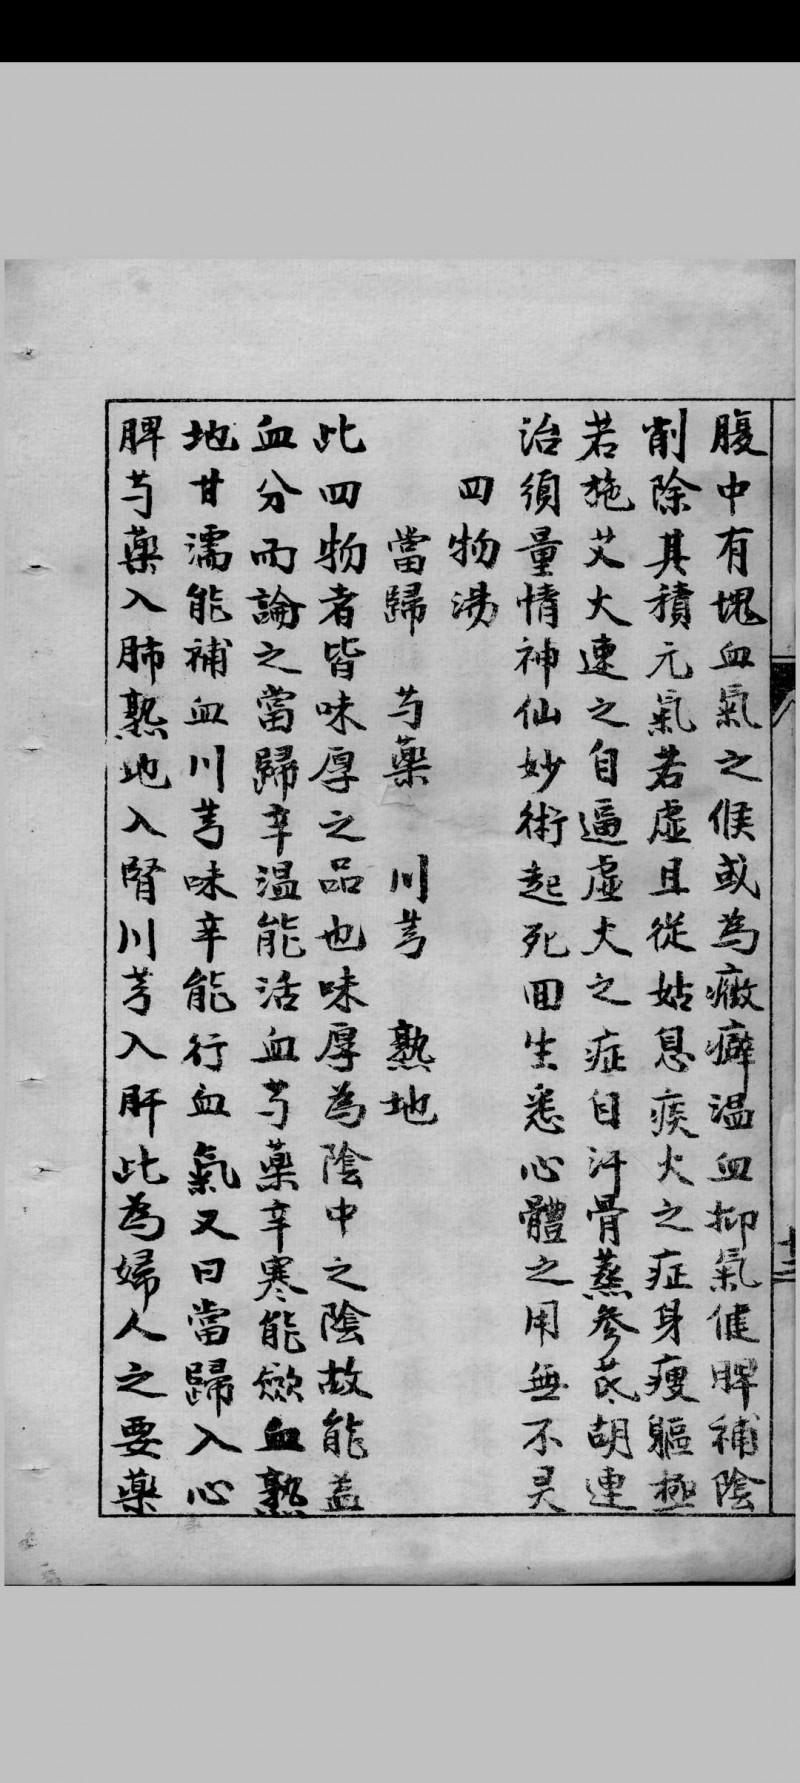 腹中有塊血氣之候或為癥癖温血抑氣健脾補陰
削除其積元氣若虛且從姑息痰火之症身瘦軀極
若施艾火速之自逼虛火之症自汗骨蒸參芪胡連
治須量情神仙妙術起死回生悉心體之用無不灵
四物湯
當歸 芍藥 川芎 熟地
此四物者皆味厚之品也味厚為陰中之陰故能益
血分而論之當歸辛温能活血芍藥辛寒能歛血熟
地甘濡能補血川芎味辛能行血氣又曰當歸入心
脾芍藥入肺熟地入腎川芎入肝此為婦人之要藥
十二